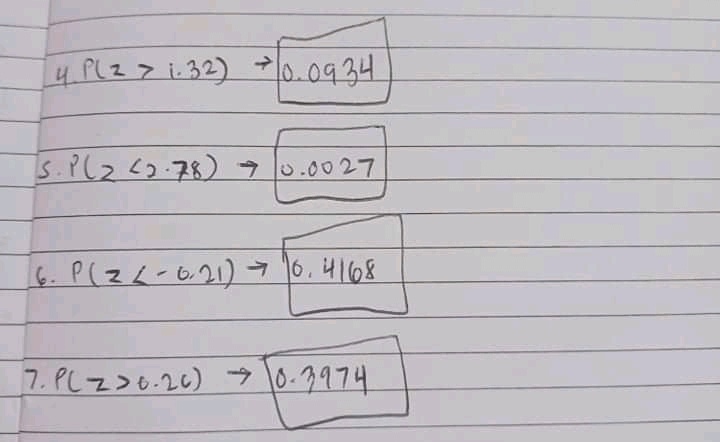 4. P(z > 1.32) → 0.0934
5. P(z < 2.78) → 0.0027
6. P(z < -0.21) → 0.4168
7. P(z > 0.26) → 0.3974